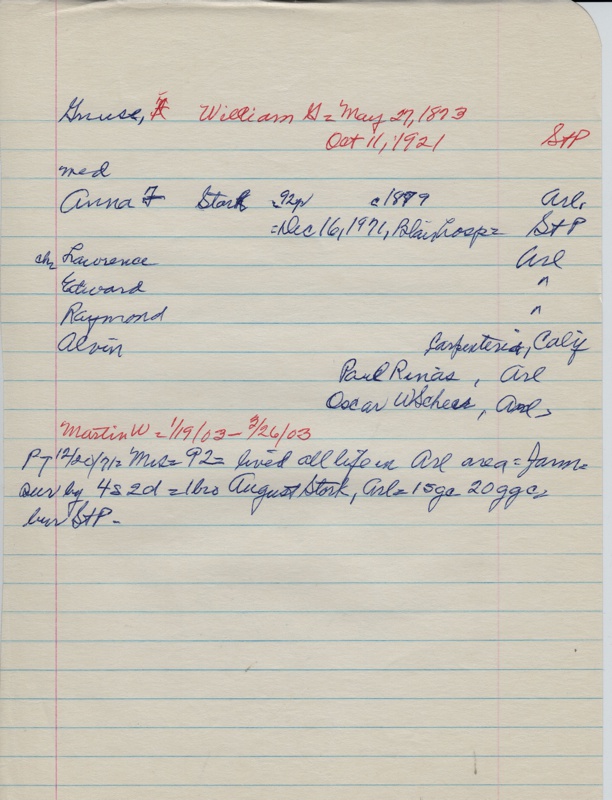 Gnuse, William G = May 27, 1873
Oct 11, 1921 StP
med
Anna F Stork 92yr c1879 Arl,
= Dec 16, 1971, Blair hosp = StP
ch Lawrence Arl
Edward "
Raymond "
Alvin Carpenteria, Calif
Paul Rinas, Arl
Oscar W Scheer, Arl,
Martin W = 1/19/03 - 3/26/03
PT 12/20/71 = Mrs = 92 = lived all life in Arl area = farm =
sur by 4s 2d = 1 bro August Stork, Arl = 15gc 20ggc =
bur StP -